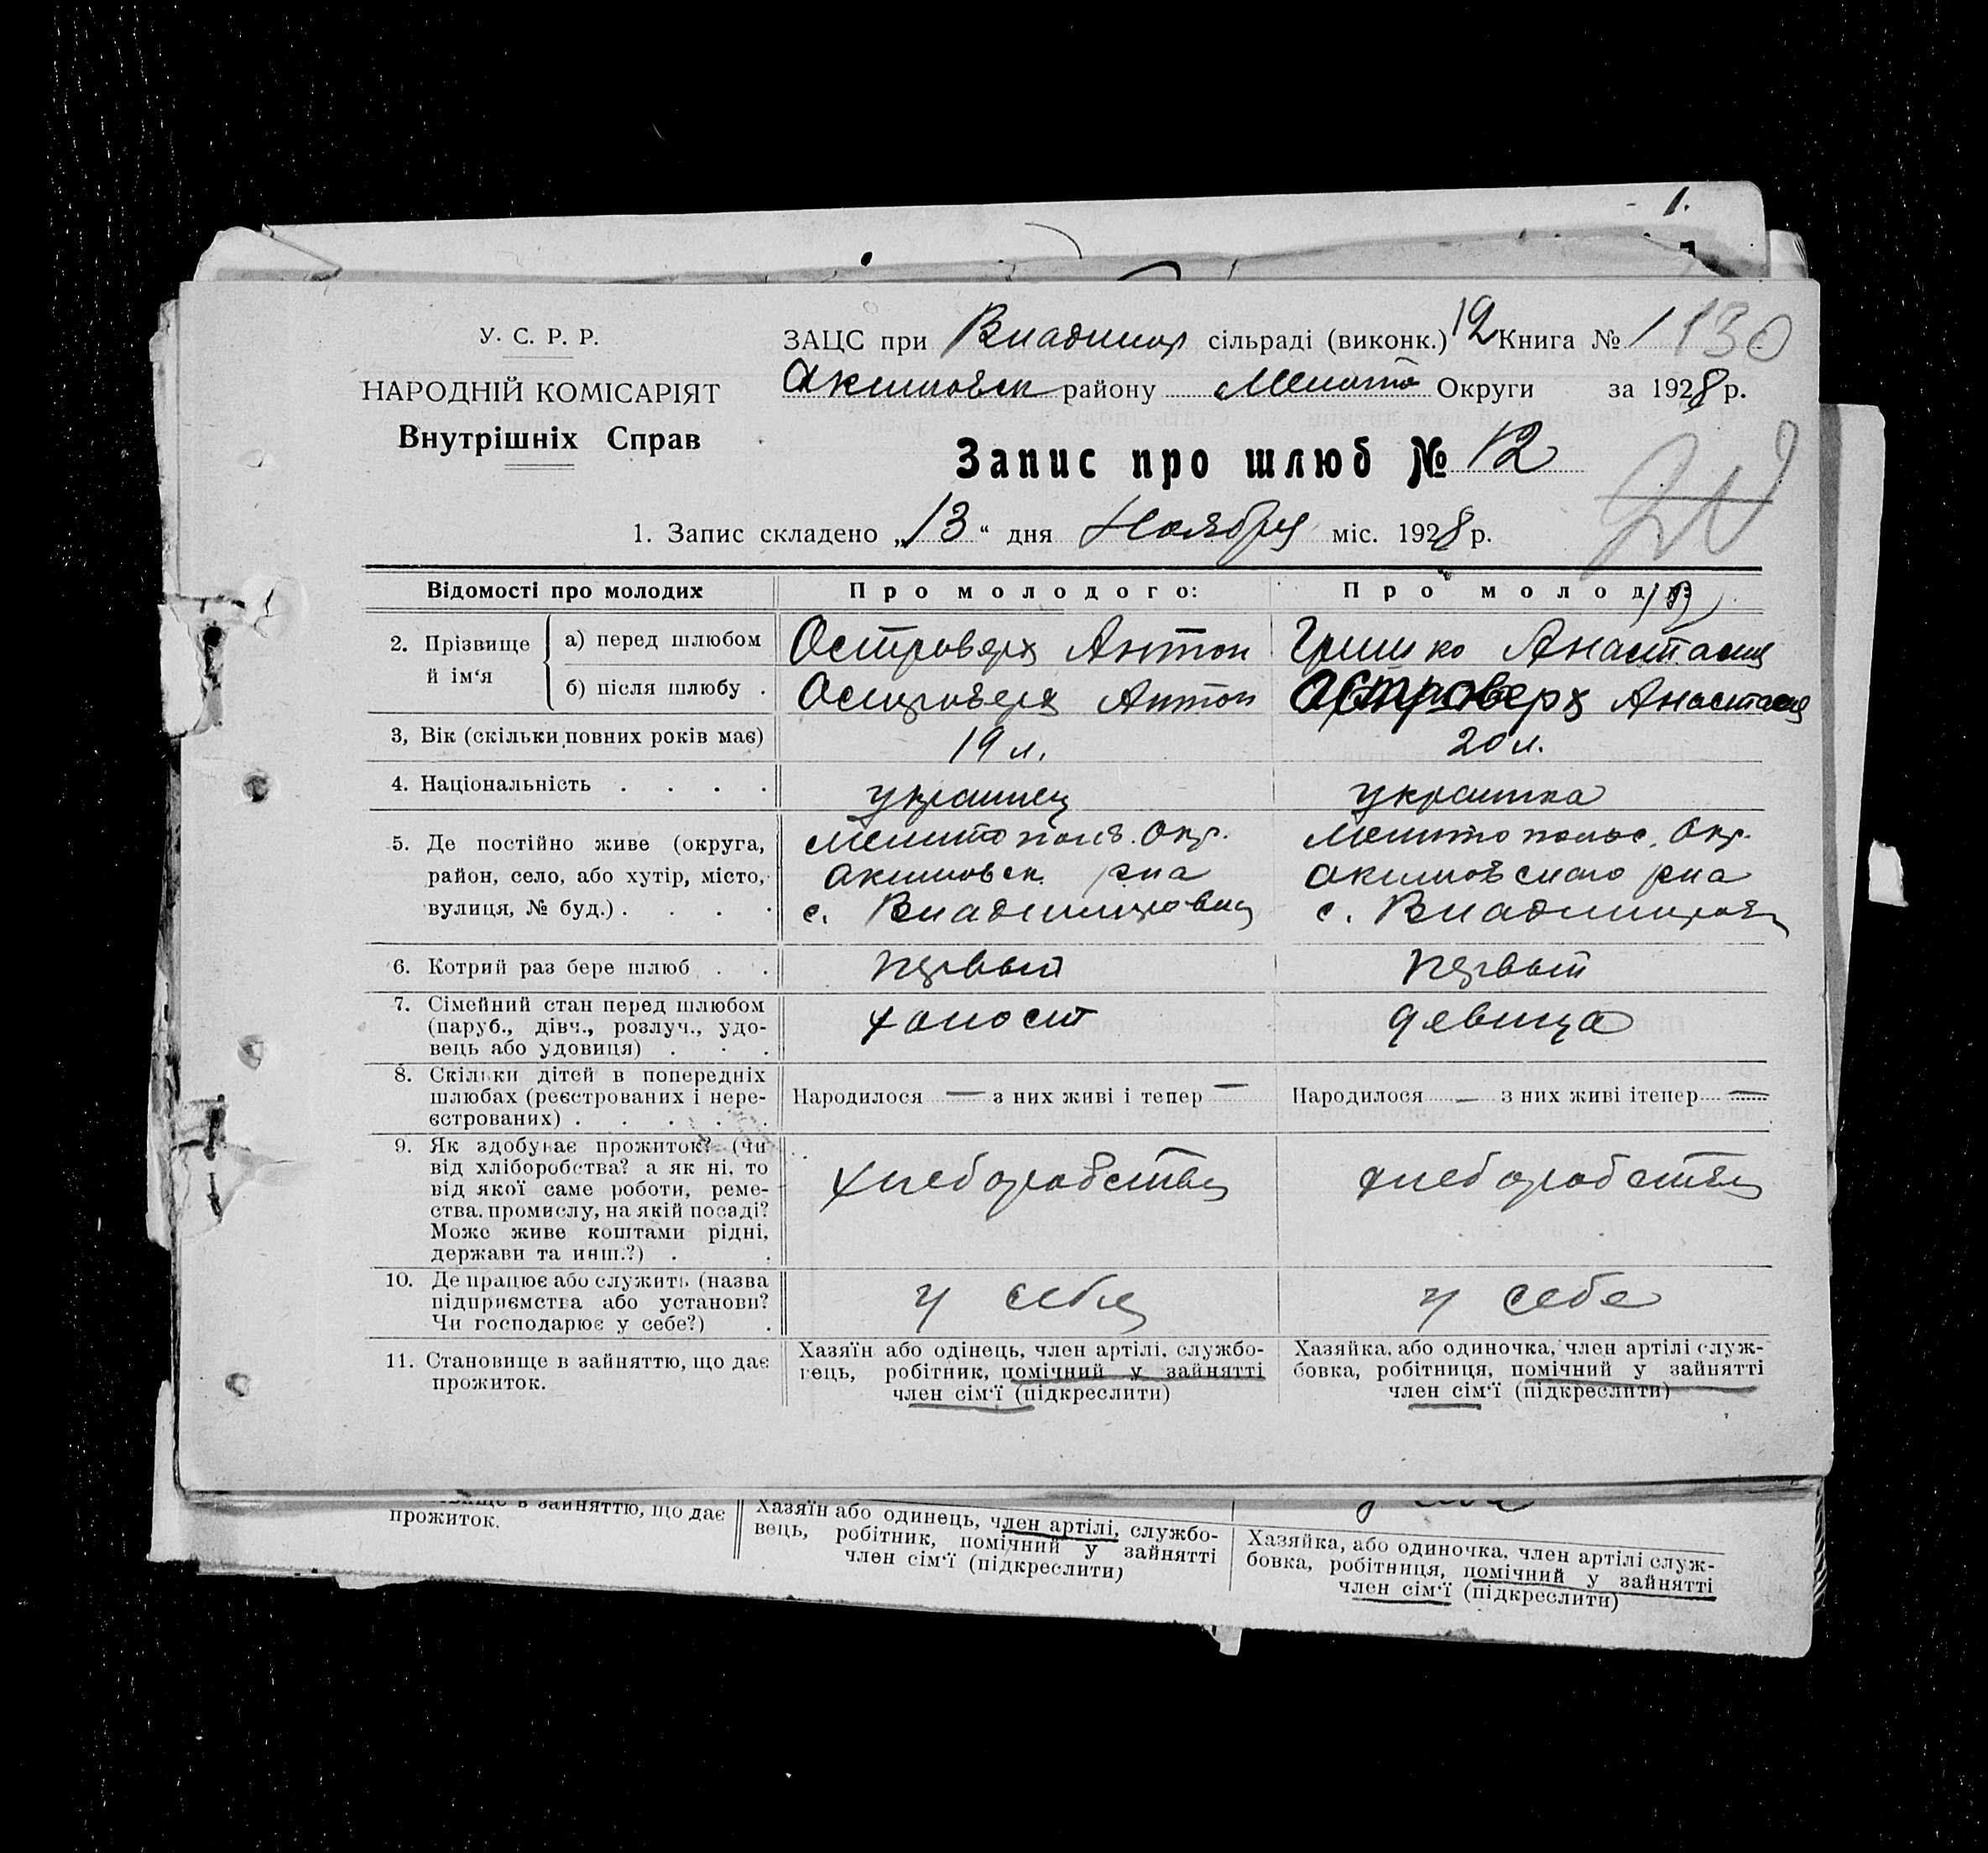 1.
У. С. Р. Р.
НАРОДНІЙ КОМІСАРІЯТ
Внутрішніх Справ
ЗАЦС при Владимир сільраді (виконк.) 12 Книга № 1 130
Акимовск району Мелито Округи за 1928 р.
Запис про шлюб № 12
1. Запис складено „13“ дня Ноября міс. 1928 р.
Відомості про молодих Про молодого: Про молоду:
2. Прізвище й ім‘я
а) перед шлюбом Островерх Антон Гришко Анастасия
б) після шлюбу . Островерх Антон Островерх Анастасия
3, Вік (скільки повних років має) 19 л. 20 л.
4. Національність . . . . украинец украинка
5. Де постійно живе (округа, Мелитопольс. Окр. Мелитопольс. Окр.
район, село, або хутір, місто, Акимовск. рна Акимовского рна
вулиця, № буд.) . . . . с. Владимировка с. Владимировк
6. Котрий раз бере шлюб . . первый первый
7. Сімейний стан перед шлюбом холост девица
(паруб., дівч., розлуч., удо-
вець або удовиця) . . .
8. Скільки дітей в попередніх
шлюбах (реєстрованих і нере- Народилося — з них живі і тепер — Народилося — з них живі ітепер —
єстрованих) . . . . .
9. Як здобуває прожиток? (Чи
від хліборобства? а як ні, то хлеборобства хлеборобства
від якої саме роботи, реме-
ства, промислу, на якій посаді?
Може живе коштами рідні,
держави та инш.?) . .
10. Де працює або служить (назва у себя у себе
підприємства або установи?
Чи господарює у себе?) .
11. Становище в зайняттю, що дає
прожиток.
Хазяїн або одінець, член артілі, службо-
вець, робітник, помічний у зайнятті
член сім‘ї (підкреслити)
Хазяйка, або одиночка, член артілі служ-
бовка, робітниця, помічний у зайнятті
член сім‘ї (підкреслити)
в зайняттю, що дає
прожиток.
Хазяїн або одинець, член артілі, службо-
вець, робітник, помічний у зайнятті
член сім‘ї (підкреслити)
Хазяйка, або одиночка, член артілі служ-
бовка, робітниця, помічний у зайнятті
член сім‘ї (підкреслити)